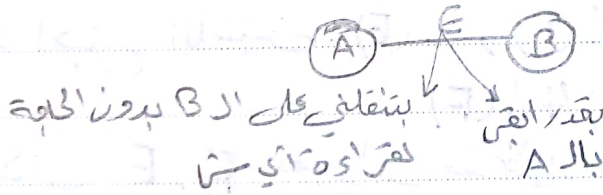 E
A B
بتنقلني على الـ B بدون الحاجة
لقراءة اي شي
بقدر ابقى
بالـ A